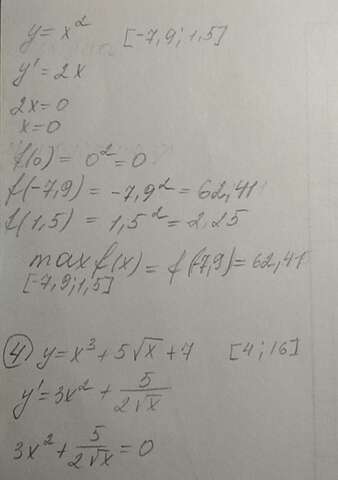 y = x² [-7,9; 1,5]
y' = 2x
2x = 0
x = 0
f(0) = 0² = 0
f(-7,9) = -7,9² = 62,41
f(1,5) = 1,5² = 2,25
max f(x) = f(-7,9) = 62,41
[-7,9; 1,5]
④ y = x³ + 5√x + 7 [4; 16]
y' = 3x² + 5/(2√x)
3x² + 5/(2√x) = 0